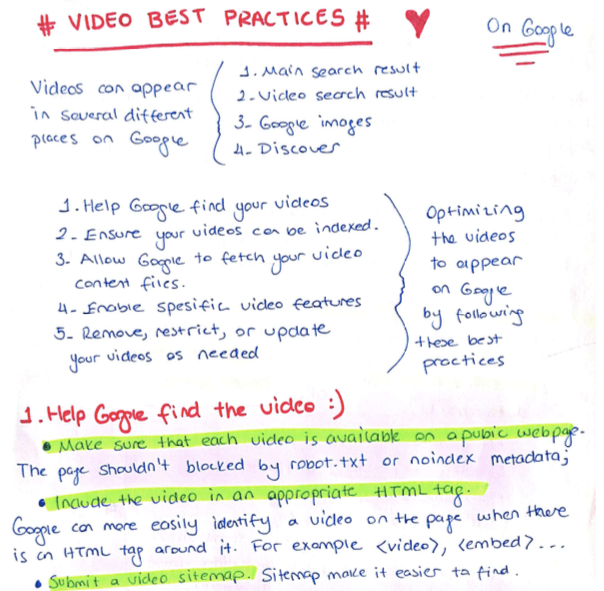 # VIDEO BEST PRACTICES #
On Google
Videos can appear
in several different
places on Google
1. Main search result
2- Video search result
3- Google images
4- Discover
1. Help Google find your videos
2- Ensure your videos can be indexed.
3- Allow Google to fetch your video
content files.
4- Enable spesific video features
5- Remove, restrict, or update
your videos as needed
Optimizing
the videos
to appear
on Google
by following
these best
practices
1. Help Google find the video :)
• Make sure that each video is available on a pubic webpage.
The page shouldn't blocked by robot.txt or noindex metadata;
• Include the video in an appropriate HTML tag.
Google can more easily identify a video on the page when there
is an HTML tag around it. For example <video>, <embed>...
• Submit a video sitemap. Sitemap make it easier to find.